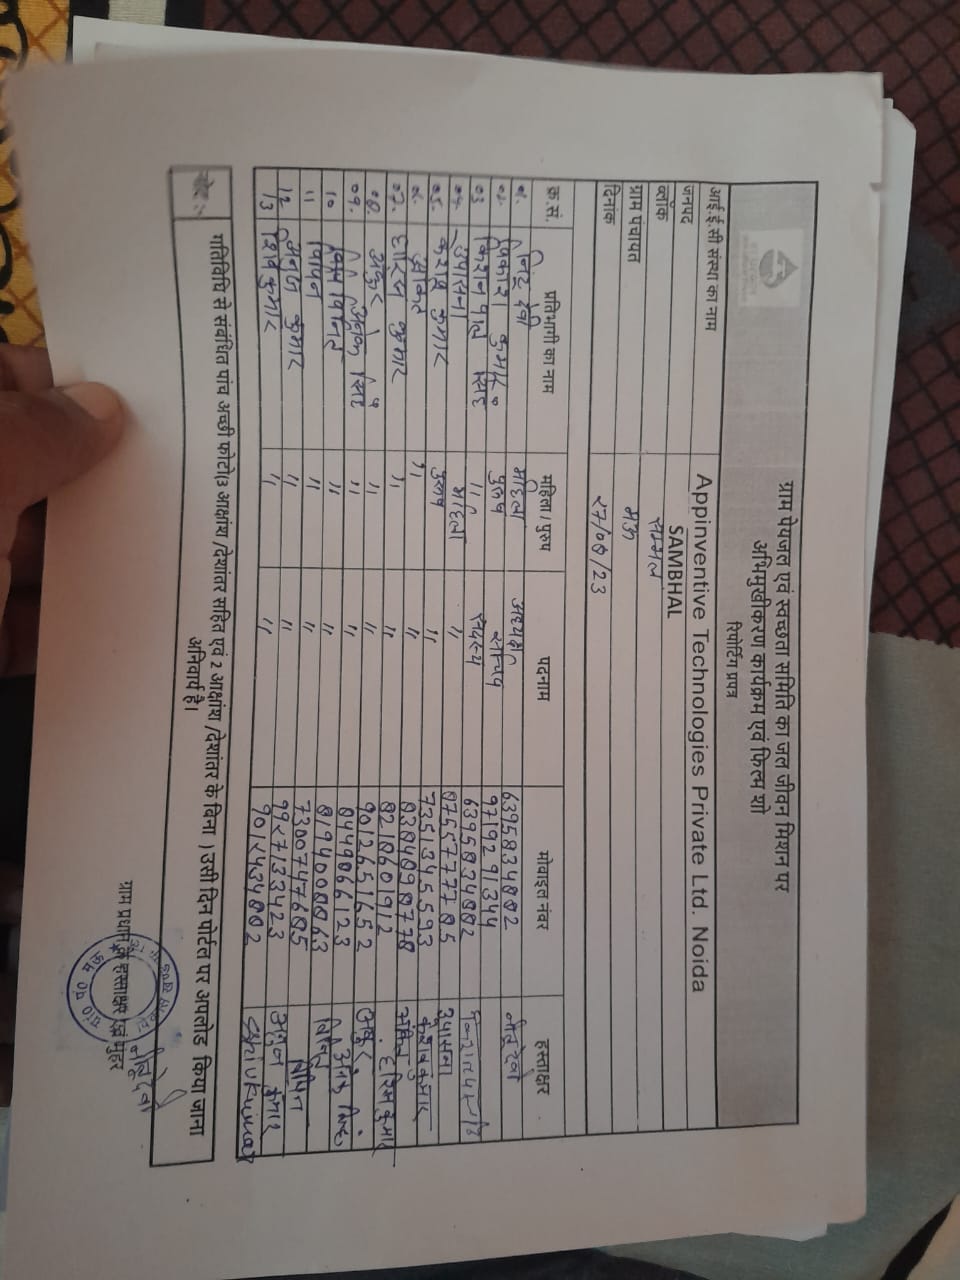 ग्राम पेयजल एवं स्वच्छता समिति का जल जीवन मिशन पर
अभिमुखीकरण कार्यक्रम एवं फिल्म शो
रिपोर्टिंग प्रपत्र
आई.ई.सी संस्था का नाम Appinventive Technologies Private Ltd. Noida
जनपद SAMBHAL
ब्लॉक सम्भल
ग्राम पंचायत
दिनांक २७/०७/23
क्र.सं. प्रतिभागी का नाम महिला / पुरुष पदनाम मोबाइल नंबर हस्ताक्षर
देवी महिला अध्यक्ष 6395834802
कुमार पुरुष 9719291344
०३ सिंह ,, सदस्य 6395834802
उपासना महिला ,, 8755777705 उपासना
०५. केशव कुमार पुरुष ,, 7351345593 केशव कुमार
अंकित ,, ,, 8384890778 अंकित
०७. कुमार ,, ,, 8218601912
०८. अंकुर ,, ,, 9012651652 अंकुर
०९. सिंह ,, ,, 8449066123 सिंह
१० ,, ,, 8194000863
११ विपिन ,, ,, 7300747685 विपिन
१२ अनुज कुमार ,, ,, 9927133423 अनुज कुमार
१३ शिव कुमार ,, ,, 9012434802 Shiv Kumar
नोट :- गतिविधि से संबंधित पांच अच्छी फोटो3 आक्षांश /देशांतर सहित एवं 2 आक्षांश /देशांतर के बिना । उसी दिन पोर्टल पर अपलोड किया जाना
अनिवार्य है।
ग्राम प्रधान के हस्ताक्षर एवं मुहर